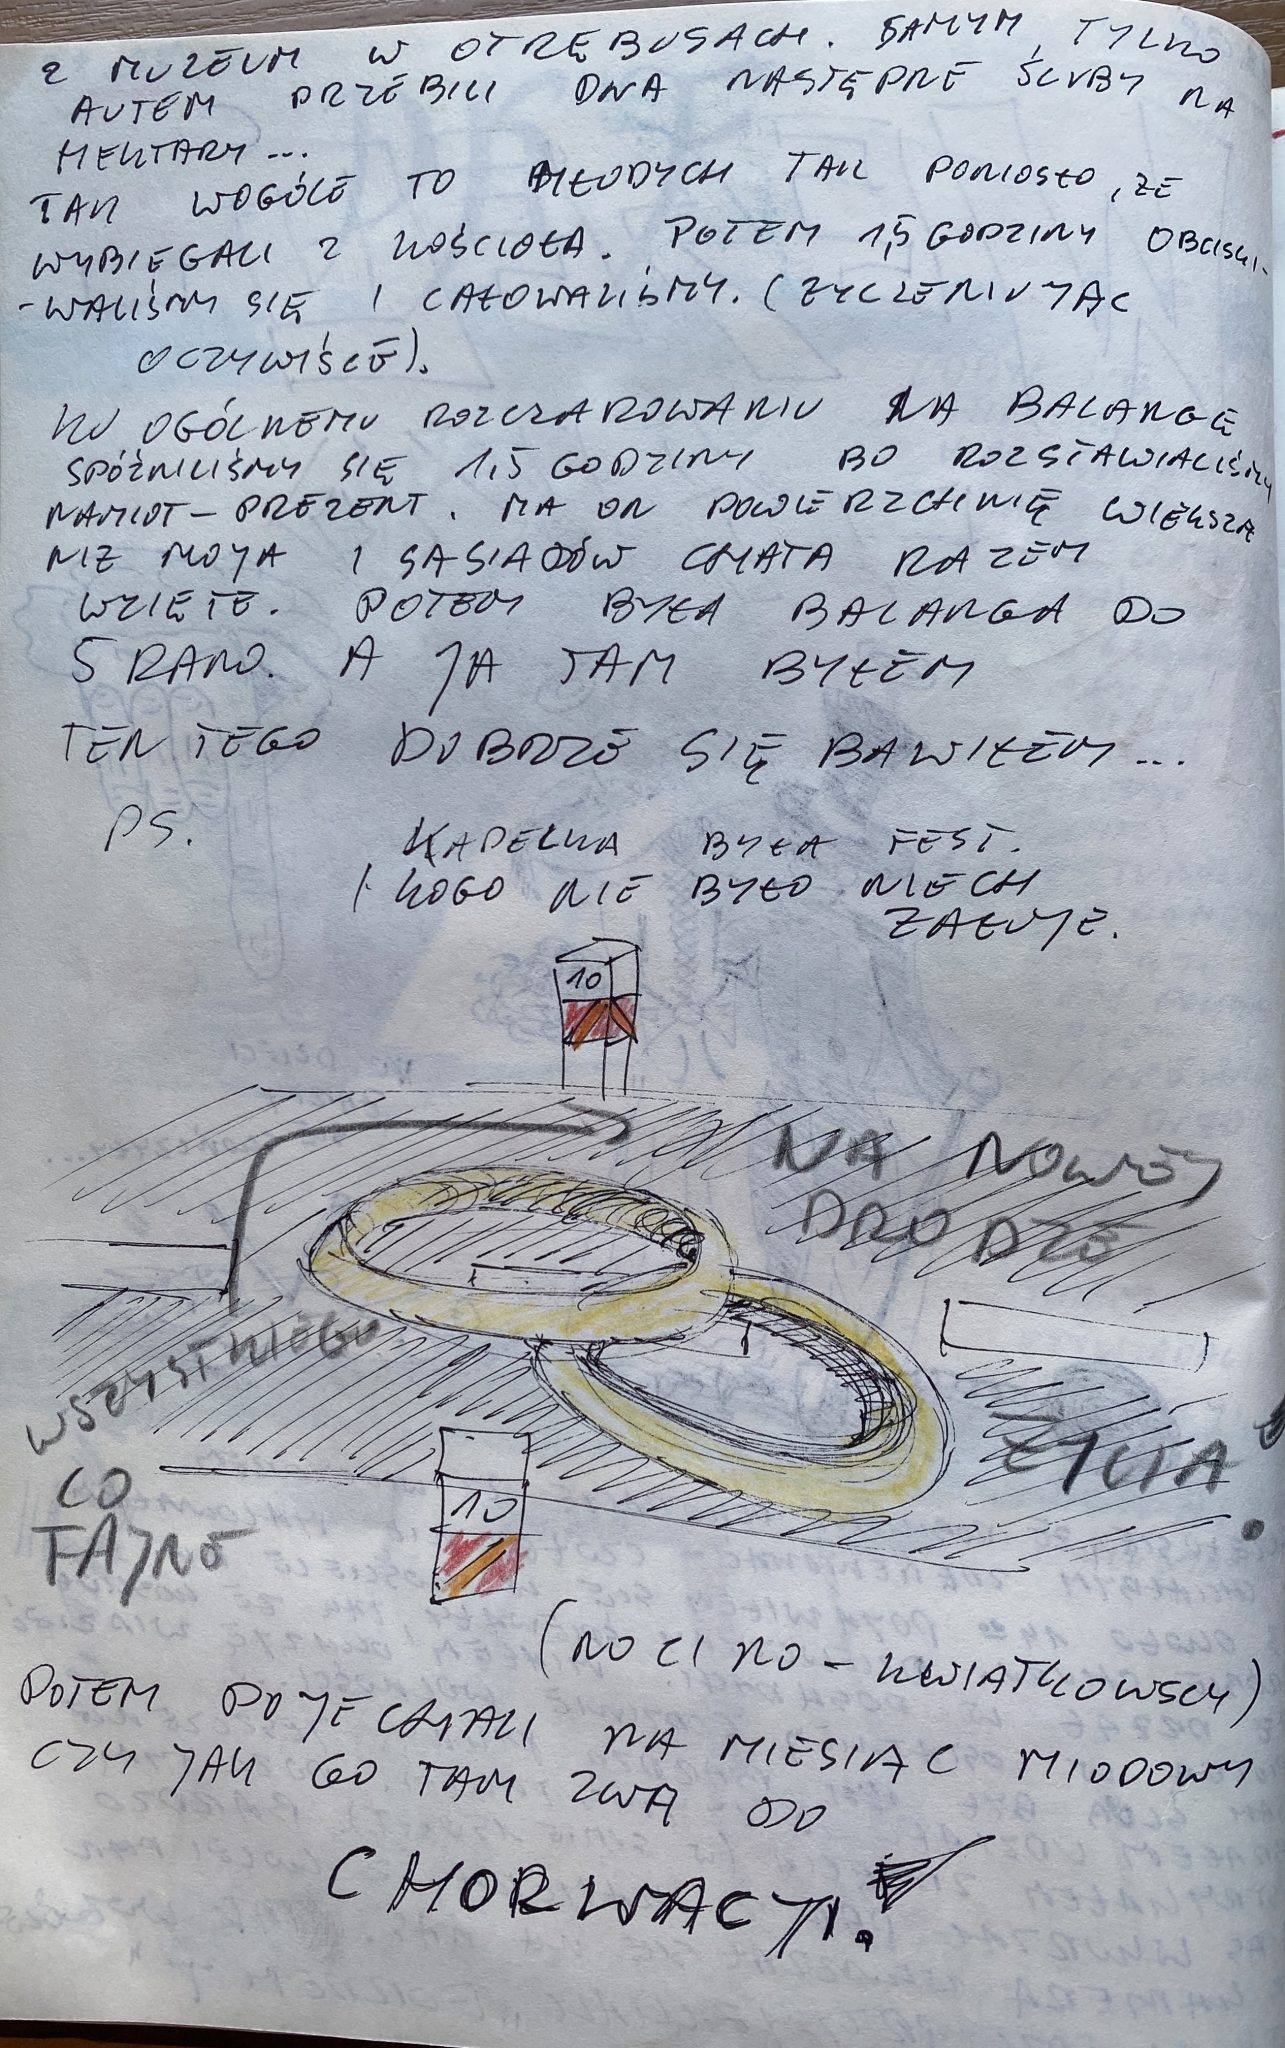 Z MUZEUM W OTRĘBUSACH. SAMYM, TYLKO
AUTEM PRZEBILI DWA NASTĘPNE ŚLUBY NA
HEKTARY...
TAK WOGÓLE TO MŁODYCH TAK PONIOSŁO, ŻE
WYBIEGALI Z KOŚCIOŁA. POTEM 1,5 GODZINY OBCISKI-
-WALIŚMY SIĘ I CAŁOWALIŚMY. (ŻYCZENIUJĄC
OCZYWIŚCIE).
KU OGÓLNEMU ROZCZAROWANIU NA BALANGĘ
SPÓŹNILIŚMY SIĘ 1,5 GODZINY BO ROZSTAWIALIŚMY
NAMIOT-PREZENT. MA ON POWIERZCHNIĘ WIĘKSZĄ
NIŻ MOJA I SĄSIADÓW CHATA RAZEM
WZIĘTE. POTEM BYŁA BALANGA DO
5 RANO. A JA TAM BYŁEM
TEN TEGO DOBRZE SIĘ BAWIŁEM...
PS.
KAPELKA BYŁA FEST.
I KOGO NIE BYŁO NIECH
ŻAŁUJE.
10
NA NOWEJ
DRODZE
WSZYSTKIEGO
ŻYCIA!
CO
FAJNE
10
(NOCINO-KWIATKOWSCY)
POTEM POJECHALI NA MIESIĄC MIODOWY
CZY JAK GO TAM ZWĄ DO
CHORWACJI!